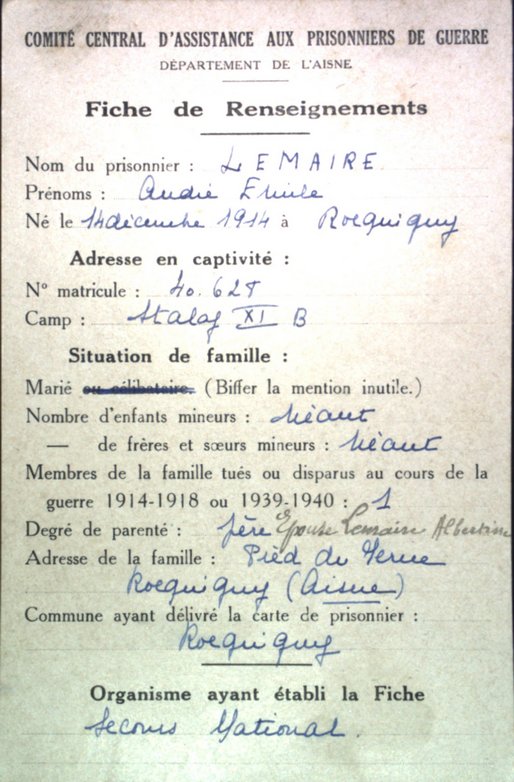 COMITÉ CENTRAL D'ASSISTANCE AUX PRISONNIERS DE GUERRE
DÉPARTEMENT DE L'AISNE
Fiche de Renseignements
Nom du prisonnier : LEMAIRE
Prénoms : André Emile
Né le 14 décembre 1914 à Rocquigny
Adresse en captivité :
N° matricule : 40.628
Camp : Stalag XI B
Situation de famille :
Marié ou célibataire. (Biffer la mention inutile.)
Nombre d'enfants mineurs : Néant
— de frères et sœurs mineurs : Néant
Membres de la famille tués ou disparus au cours de la
guerre 1914-1918 ou 1939-1940 : 1
Degré de parenté : père Epouse Lemaire Albertine
Adresse de la famille : Pied du
Rocquigny (Aisne)
Commune ayant délivré la carte de prisonnier :
Rocquigny
Organisme ayant établi la Fiche
Secours National.